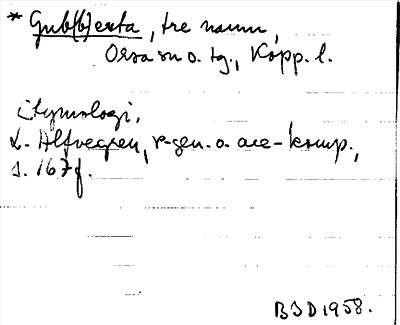 * Gub(b)erta, tre namn,
Orsa sn o. tg., Kopp. l.
Etymologi,
L. Alfvegren, r-gen. o. are-komp.,
s. 167 f.
BSD 1958.